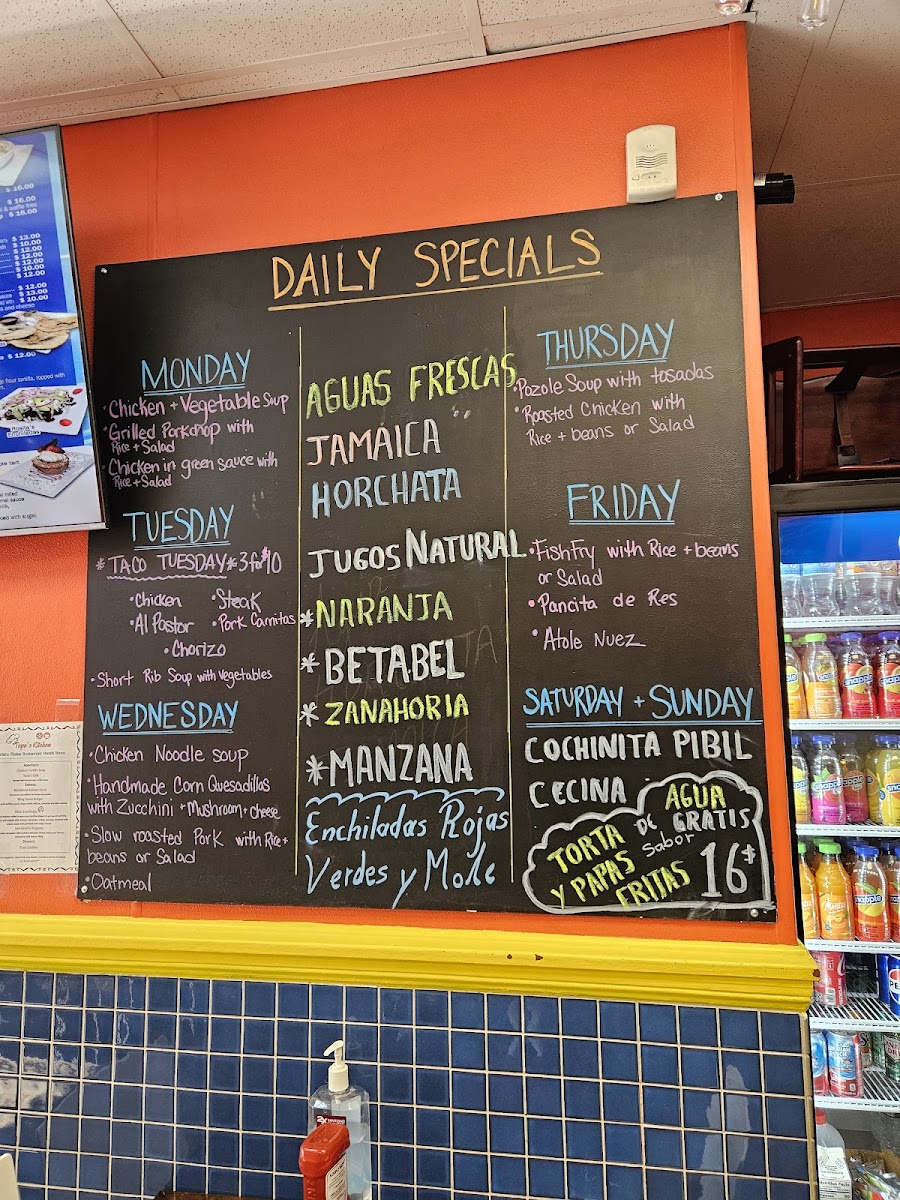 DAILY SPECIALS
MONDAY
• Chicken + Vegetable Soup
• Grilled Porkchop with
Rice + Salad
• Chicken in green sauce with
Rice + Salad
TUESDAY
* TACO TUESDAY * 3 for $10
• Chicken • Steak
• Al Pastor • Pork Carnitas
• Chorizo
• Short Rib Soup with Vegetables
WEDNESDAY
• Chicken Noodle soup
• Handmade Corn Quesadillas
with Zucchini + Mushroom + Cheese
• Slow roasted Pork with Rice +
beans or Salad
• Oatmeal
AGUAS FRESCAS
JAMAICA
HORCHATA
JUGOS NATURAL
* NARANJA
* BETABEL
* ZANAHORIA
* MANZANA
Enchiladas Rojas
Verdes y Mole
THURSDAY
• Pozole Soup with tosadas
• Roasted Chicken with
Rice + beans or Salad
FRIDAY
• Fish Fry with Rice + beans
or Salad
• Pancita de Res
• Atole Nuez
SATURDAY + SUNDAY
COCHINITA PIBIL
CECINA
TORTA
Y PAPAS
FRITAS
AGUA
DE GRATIS
Sabor
16$
$ 16.00
$ 16.00
$ 16.00
$ 13.00
$ 10.00
$ 12.00
$ 12.00
$ 12.00
$ 10.00
$ 12.00
$ 12.00
$ 13.00
$ 10.00
$ 12.00
flour tortilla, topped with
Pepe's Kitchen
snapple
snapple
snapple
snapple
snapple
snapple